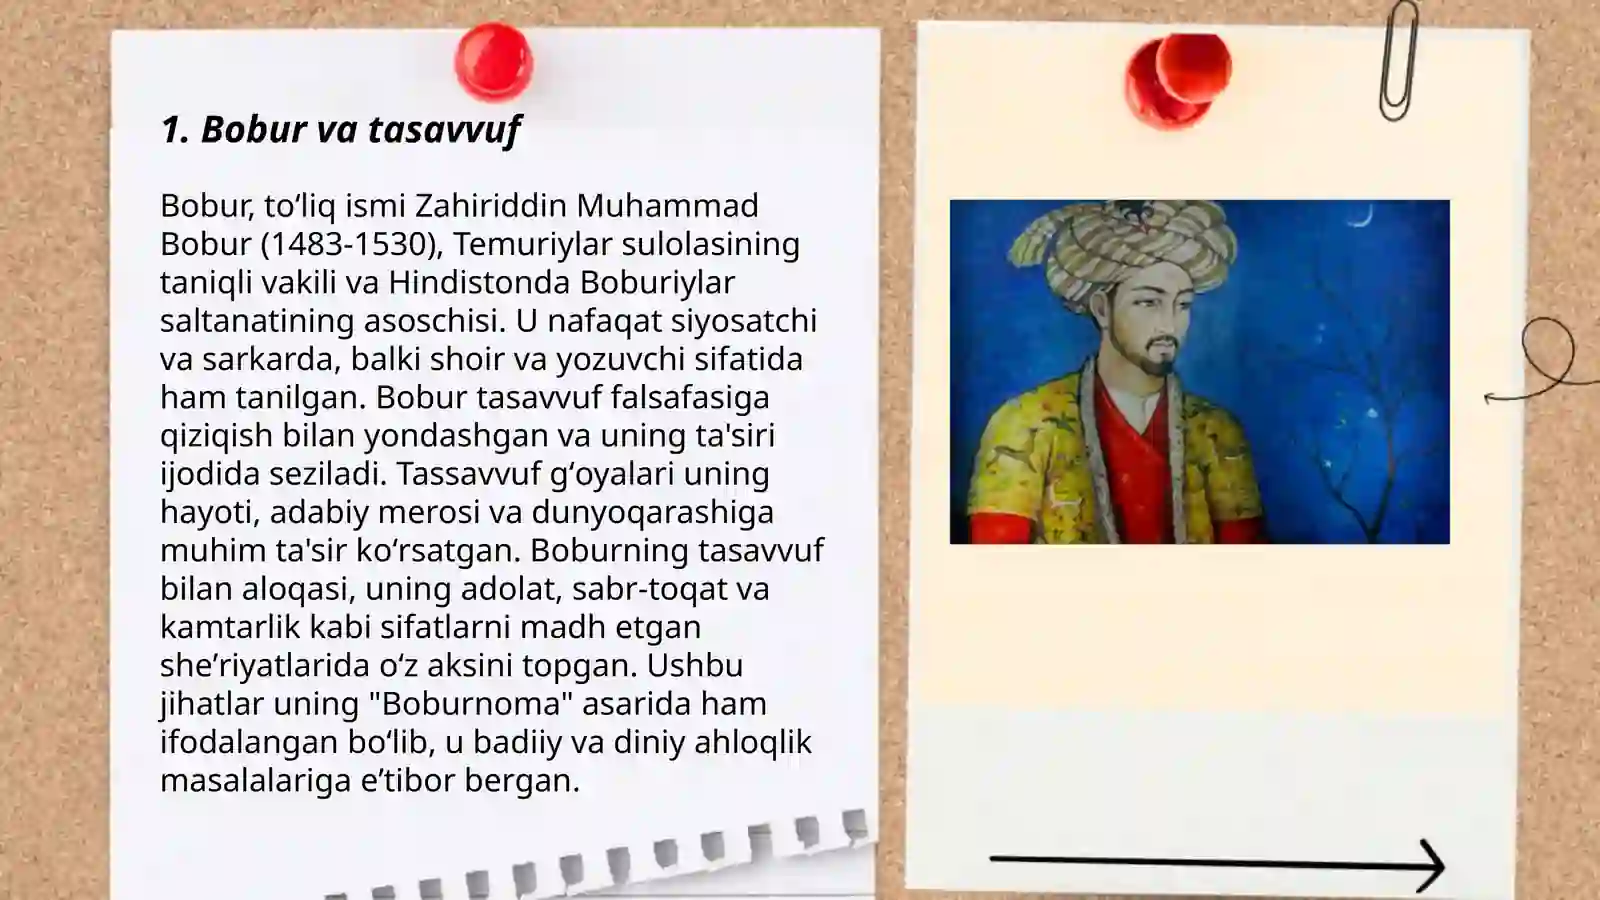 1. Bobur va tasavvuf
Bobur, to‘liq ismi Zahiriddin Muhammad
Bobur (1483-1530), Temuriylar sulolasining
taniqli vakili va Hindistonda Boburiylar
saltanatining asoschisi. U nafaqat siyosatchi
va sarkarda, balki shoir va yozuvchi sifatida
ham tanilgan. Bobur tasavvuf falsafasiga
qiziqish bilan yondashgan va uning ta'siri
ijodida seziladi. Tassavvuf g‘oyalari uning
hayoti, adabiy merosi va dunyoqarashiga
muhim ta'sir ko‘rsatgan. Boburning tasavvuf
bilan aloqasi, uning adolat, sabr-toqat va
kamtarlik kabi sifatlarni madh etgan
she’riyatlarida o‘z aksini topgan. Ushbu
jihatlar uning "Boburnoma" asarida ham
ifodalangan bo‘lib, u badiiy va diniy ahloqlik
masalalariga e’tibor bergan.